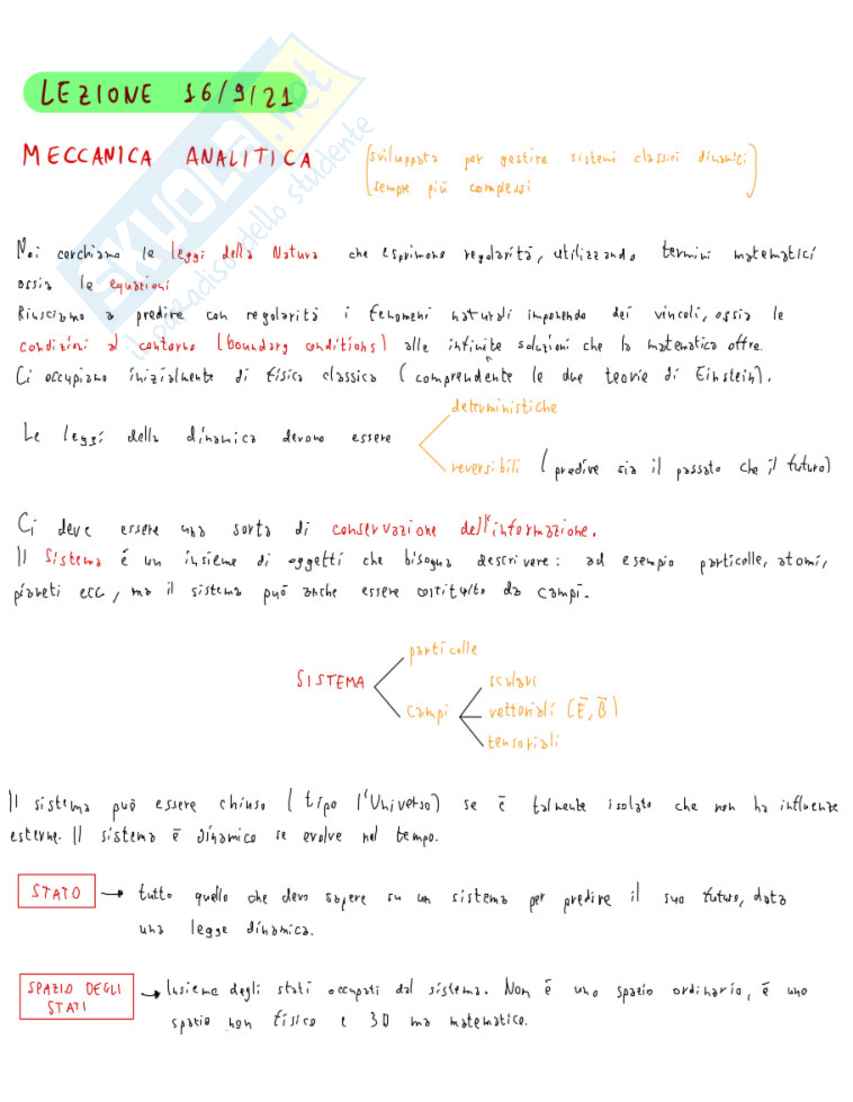 LEZIONE 16/9/21
MECCANICA ANALITICA (sviluppata per gestire sistemi classici dinamici
sempre più complessi)
Noi cerchiamo le leggi della Natura che esprimono regolarità, utilizzando termini matematici
ossia le equazioni
Riusciamo a predire con regolarità i fenomeni naturali imponendo dei vincoli, ossia le
condizioni al contorno (boundary conditions) alle infinite soluzioni che la matematica offre.
Ci occupiamo inizialmente di fisica classica (comprendente le due teorie di Einstein).
deterministiche
Le leggi della dinamica devono essere
reversibili (predire sia il passato che il futuro)
Ci deve essere una sorta di conservazione dell'informazione.
Il Sistema è un insieme di oggetti che bisogna descrivere: ad esempio particelle, atomi,
pianeti ecc, ma il sistema può anche essere costituito da campi.
particelle
SISTEMA
scalari
campi
vettoriali (E̅, B̅)
tensoriali
Il sistema può essere chiuso (tipo l'Universo) se è talmente isolato che non ha influenze
esterne. Il sistema è dinamico se evolve nel tempo.
STATO → tutto quello che devo sapere su un sistema per predire il suo futuro, data
una legge dinamica.
SPAZIO DEGLI STATI → Insieme degli stati occupati dal sistema. Non è uno spazio ordinario, è uno
spazio non fisico e 3D ma matematico.
SKUOLA.net
il paradiso dello studente